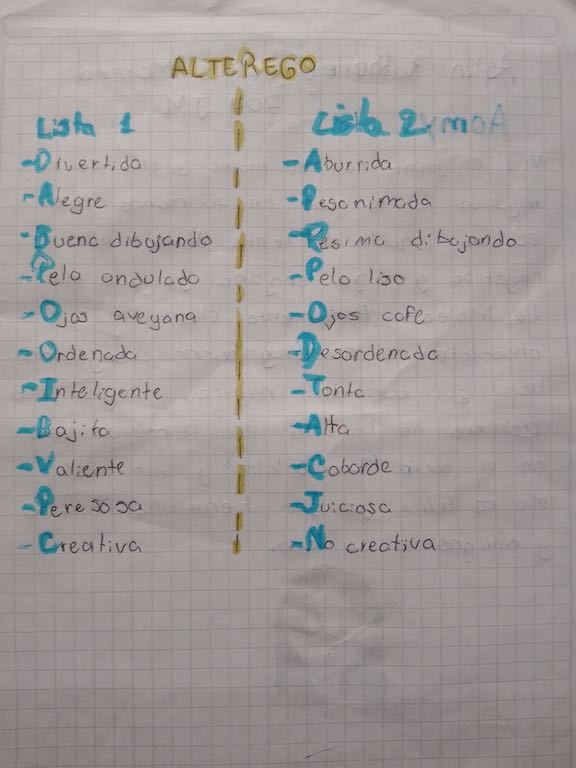 ALTEREGO
Lista 1
-Divertida
-Alegre
-Buena dibujando
-Pelo ondulado
-Ojos aveyana
-Ordenada
-Inteligente
-Bajita
-Valiente
-Peresosa
-Creativa
Lista 2
-Aburrida
-Pesonimada
-Pesima dibujando
-Pelo liso
-Ojos cafe
-Desordenada
-Tonta
-Alta
-Cobarde
-Juiciosa
-No creativa